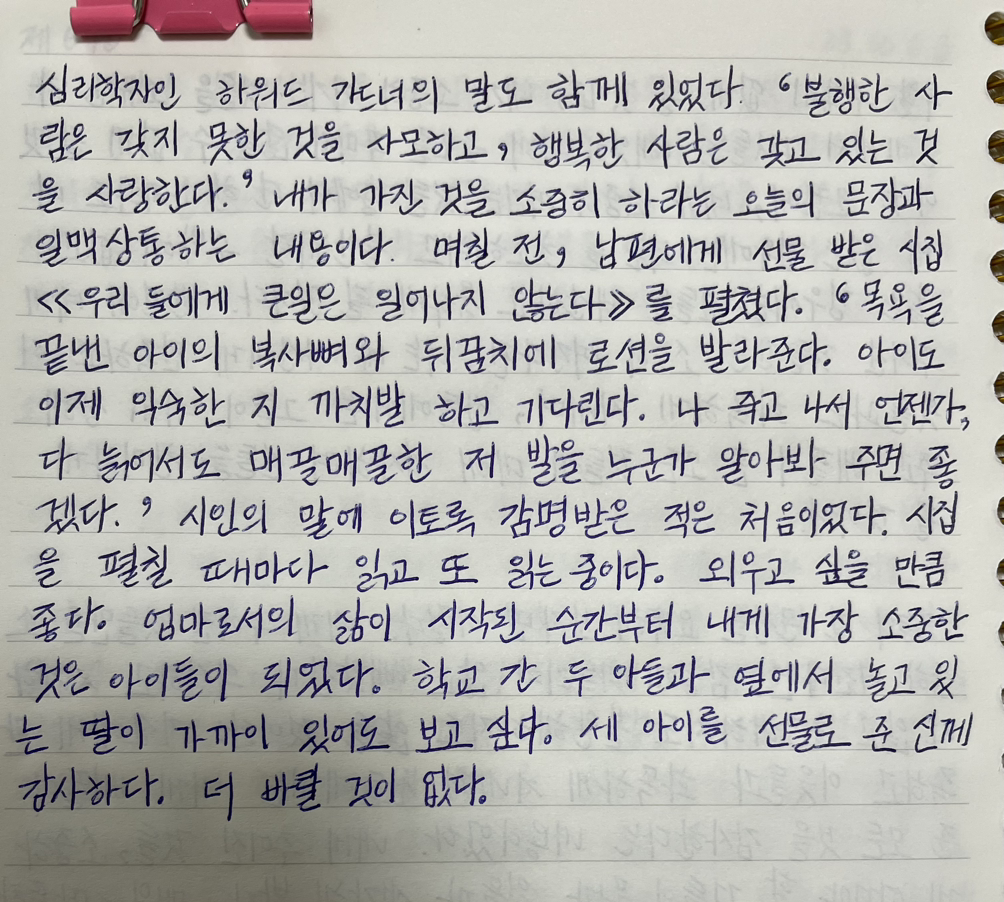 심리학자인 하워드 가드너의 말도 함께 있었다. ‘불행한 사
람은 갖지 못한 것을 사모하고, 행복한 사람은 갖고 있는 것
을 사랑한다.’ 내가 가진 것을 소중히 하라는 오늘의 문장과
일맥상통하는 내용이다. 며칠 전, 남편에게 선물 받은 시집
《우리 들에게 큰일은 일어나지 않는다》를 펼쳤다. ‘목욕을
끝낸 아이의 복사뼈와 뒤꿈치에 로션을 발라준다. 아이도
이제 익숙한 지 까치발 하고 기다린다. 나 죽고 나서 언젠가,
다 늙어서도 매끌매끌한 저 발을 누군가 알아봐 주면 좋
겠다.’ 시인의 말에 이토록 감명받은 적은 처음이었다. 시집
을 펼칠 때마다 읽고 또 읽는 중이다. 외우고 싶을 만큼
좋다. 엄마로서의 삶이 시작된 순간부터 내게 가장 소중한
것은 아이들이 되었다. 학교 간 두 아들과 옆에서 놀고 있
는 딸이 가까이 있어도 보고 싶다. 세 아이를 선물로 준 신께
감사하다. 더 바랄 것이 없다.